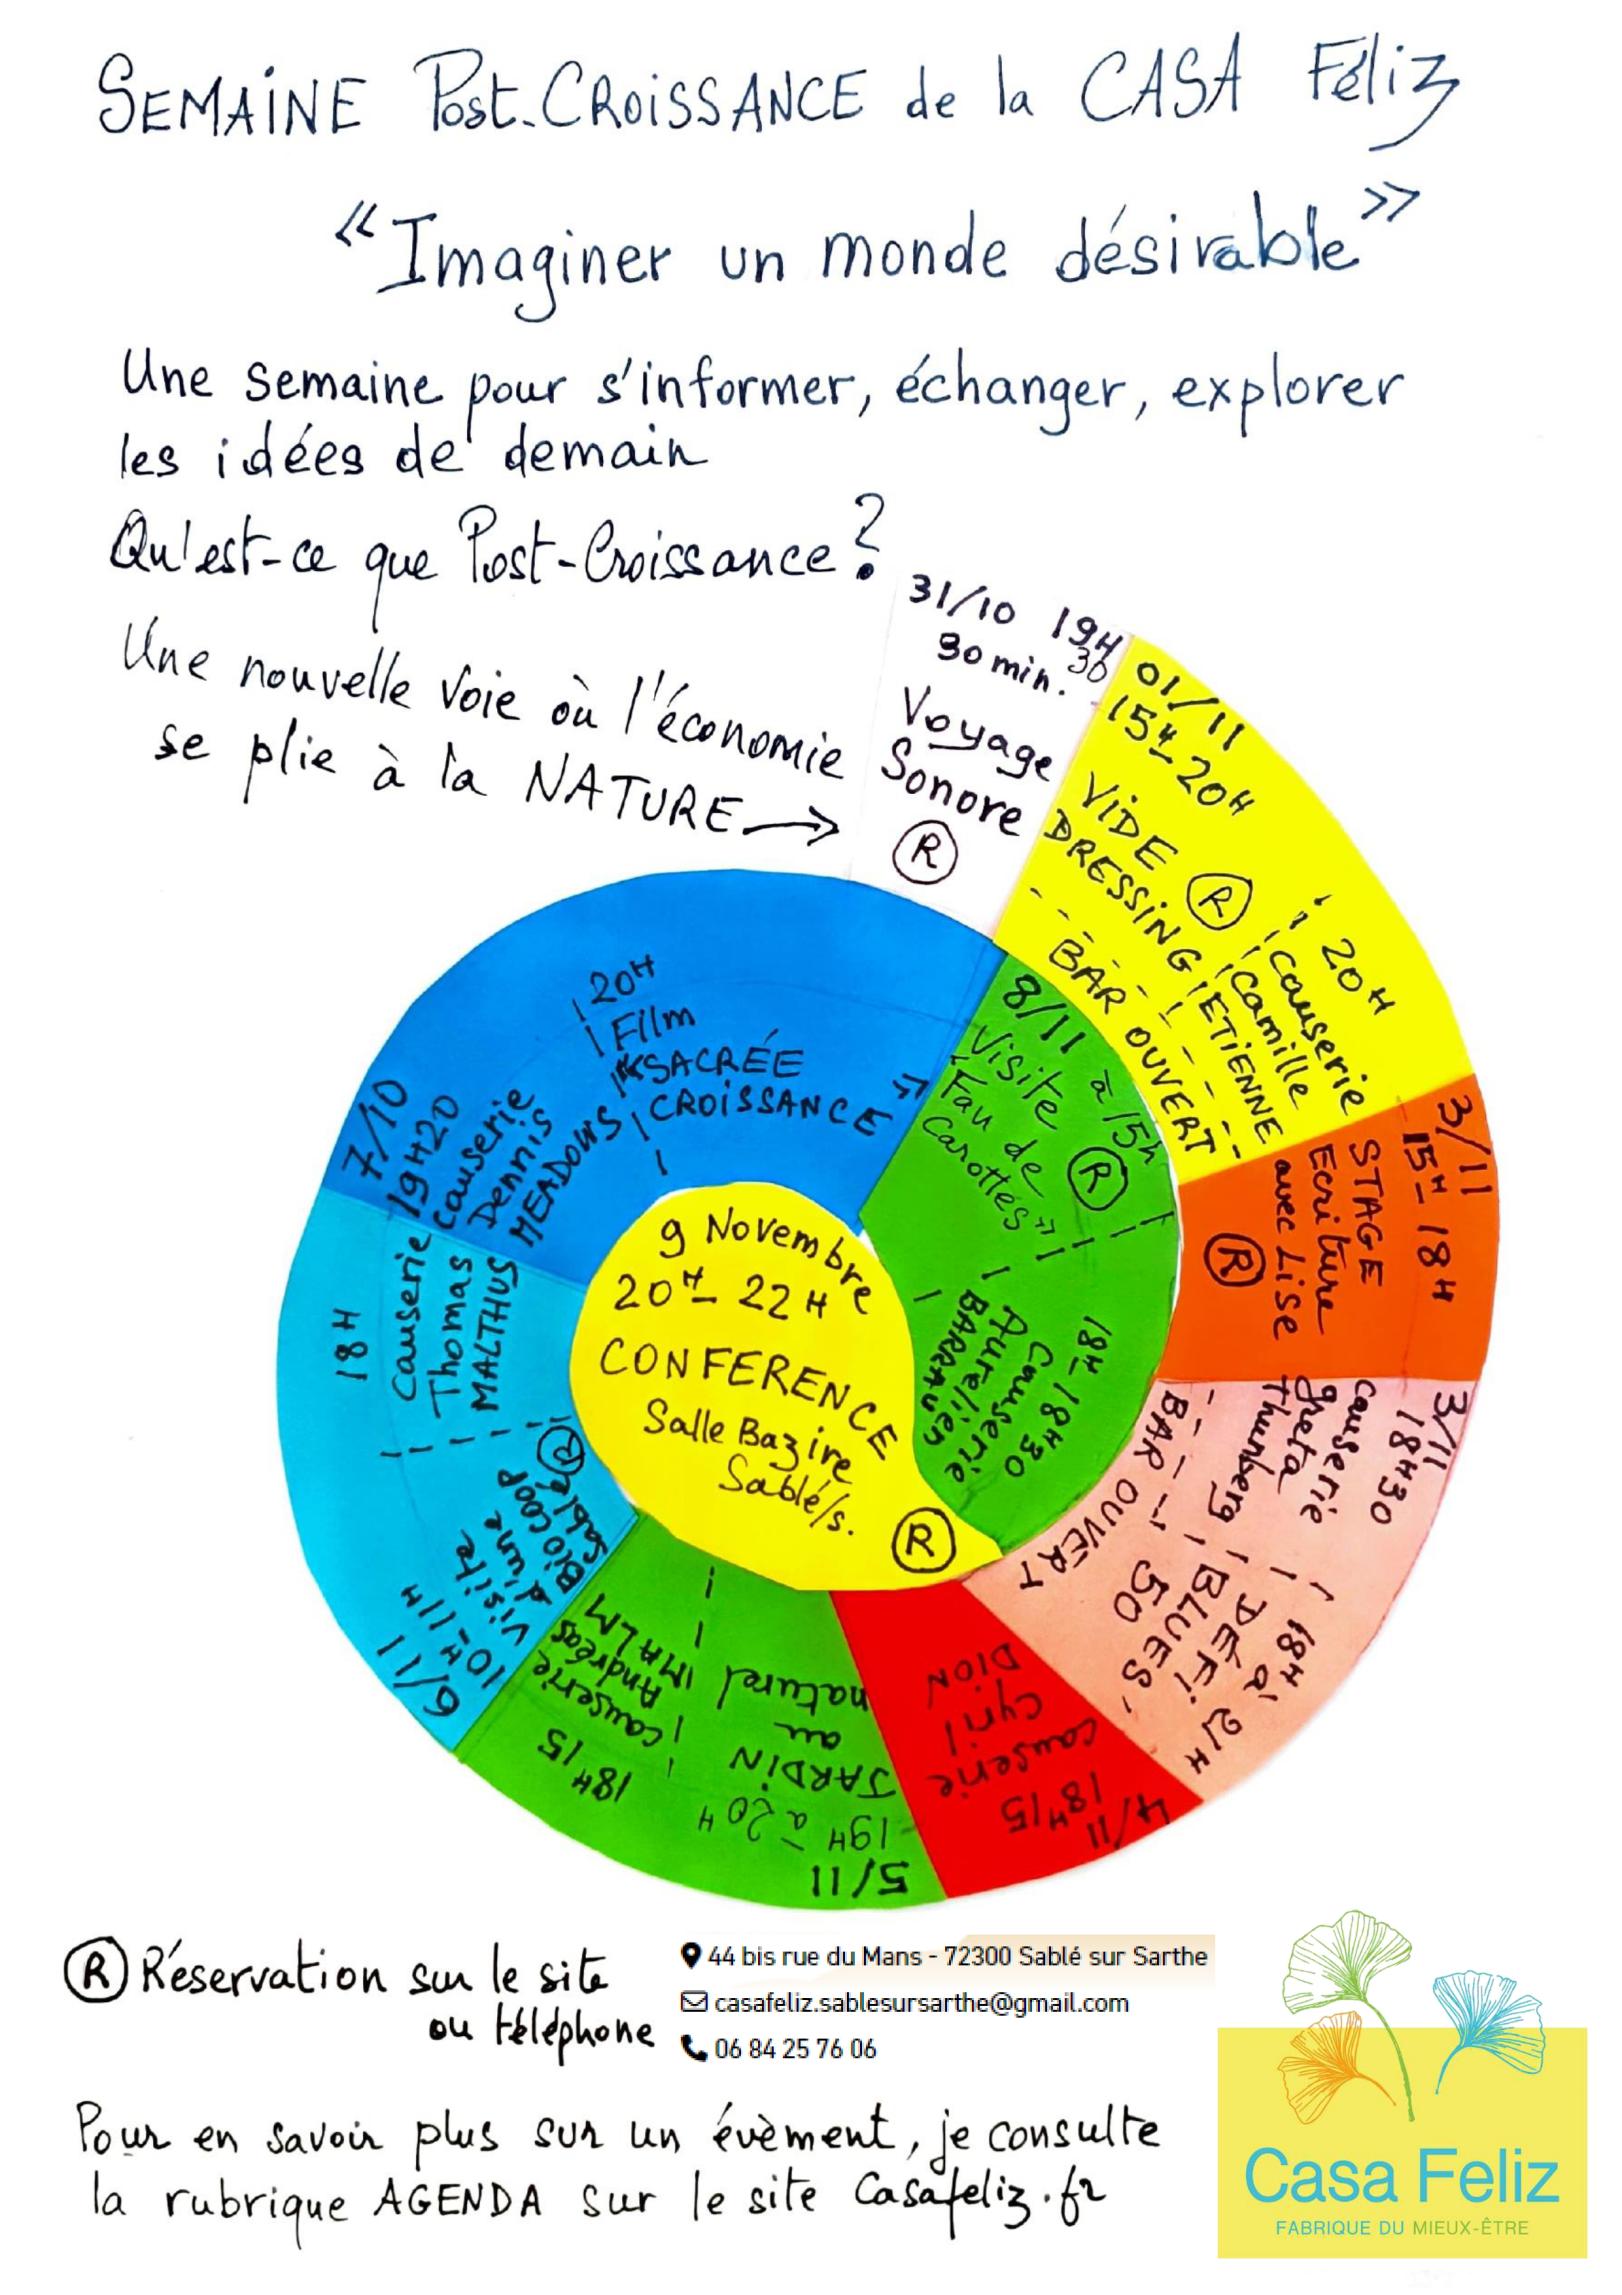 SEMAINE Post-CROISSANCE de la CASA Féliz
« Imaginer un monde désirable »
Une semaine pour s'informer, échanger, explorer
les idées de demain
Qu'est-ce que Post-Croissance ?
Une nouvelle voie où l'économie
se plie à la NATURE →
31/10 19H
30
30 min.
Voyage
Sonore
R
01/11
15H-20H
VIDE R
DRESSING
BAR OUVERT
20H
Causerie
Camille
ETIENNE
3/11
15H-18H
STAGE
Ecriture
avec Lise
R
3/11
18H30
Causerie
greta
thunberg
BAR OUVERT
18H à 21H
DÉFI
BLUES
50'S
4/11
18H15
Causerie
Cyril
DION
5/11
19H à 20H
JARDIN
au
naturel
18H15
causerie
Andréas
MALM
6/11
10H-11H
Visite
d'une
BIOCOOP
Sablé
R
18H
Causerie
Thomas
MALTHUS
7/10
19H20
Causerie
Dennis
MEADOWS
20H
Film
« SACRÉE
CROISSANCE »
8/11
à 15h
Visite
« Fan de
Carottes »
R
18H-18H30
Causerie
Aurélien
BARRAU
9 Novembre
20H-22H
CONFERENCE
Salle Bazire
Sablé/s.
R
R Réservation sur le site
ou téléphone
44 bis rue du Mans - 72300 Sablé sur Sarthe
casafeliz.sablesursarthe@gmail.com
06 84 25 76 06
Pour en savoir plus sur un évèment, je consulte
la rubrique AGENDA sur le site Casafeliz.fr
Casa Feliz
FABRIQUE DU MIEUX-ÊTRE